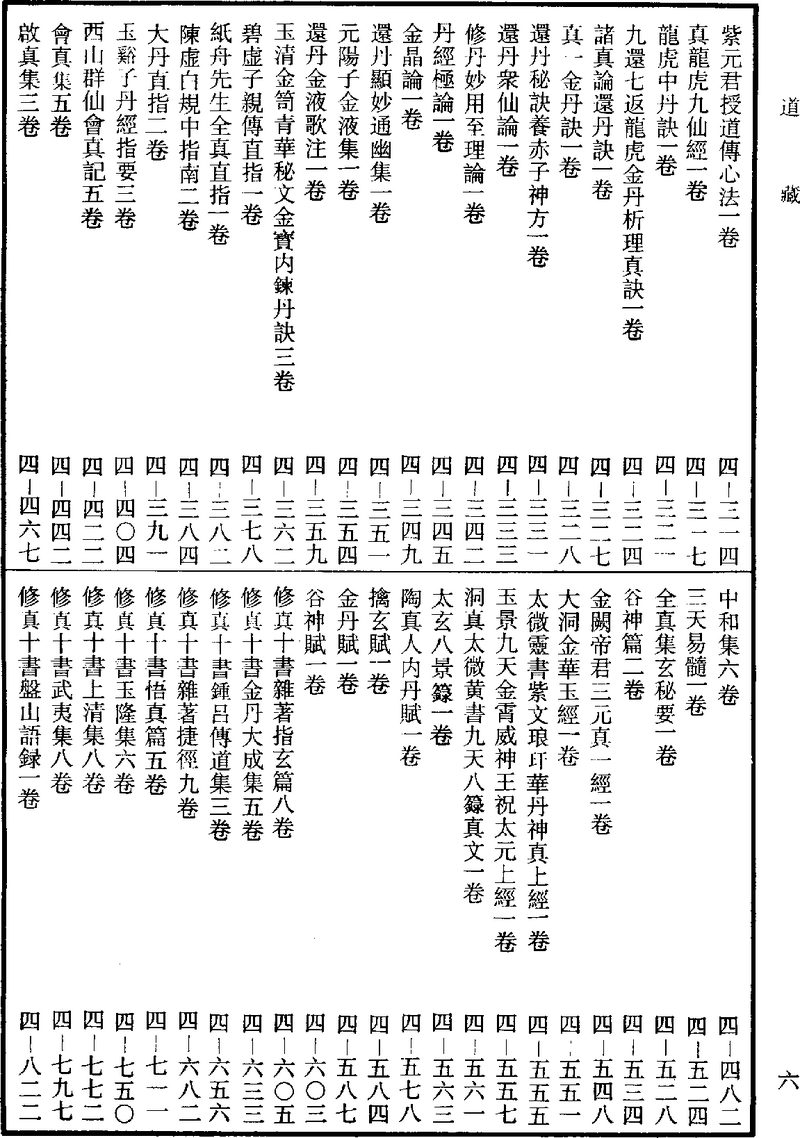 道藏
六
紫元君授道傳心法一卷 四—三一四
真龍虎九仙經一卷 四—三一七
龍虎中丹訣一卷 四—三二一
九還七返龍虎金丹析理真訣一卷 四—三二四
諸真論還丹訣一卷 四—三二七
真一金丹訣一卷 四—三二八
還丹秘訣養赤子神方一卷 四—三三一
還丹衆仙論一卷 四—三三三
修丹妙用至理論一卷 四—三四二
丹經極論一卷 四—三四五
金晶論一卷 四—三四九
還丹顯妙通幽集一卷 四—三五一
元陽子金液集一卷 四—三五四
還丹金液歌注一卷 四—三五九
玉清金笥青華秘文金寶内鍊丹訣三卷 四—三六二
碧虚子親傳直指一卷 四—三七八
紙舟先生全真直指一卷 四—三八二
陳虚白規中指南二卷 四—三八四
大丹直指二卷 四—三九一
玉谿子丹經指要三卷 四—四〇四
西山群仙會真記五卷 四—四二二
會真集五卷 四—四四二
啟真集三卷 四—四六七
中和集六卷 四—四八二
三天易髓一卷 四—五二四
全真集玄秘要一卷 四—五二八
谷神篇二卷 四—五三四
金闕帝君三元真一經一卷 四—五四八
大洞金華玉經一卷 四—五五一
太微靈書紫文琅玕華丹神真上經一卷 四—五五五
玉景九天金霄威神王祝太元上經一卷 四—五五七
洞真太微黄書九天八籙真文一卷 四—五六一
太玄八景籙一卷 四—五六三
陶真人内丹賦一卷 四—五七八
擒玄賦一卷 四—五八四
金丹賦一卷 四—五八七
谷神賦一卷 四—六〇三
修真十書雜著指玄篇八卷 四—六〇五
修真十書金丹大成集五卷 四—六三三
修真十書鍾吕傳道集三卷 四—六五六
修真十書雜著捷徑九卷 四—六八二
修真十書悟真篇五卷 四—七一一
修真十書玉隆集六卷 四—七五〇
修真十書上清集八卷 四—七七二
修真十書武夷集八卷 四—七九七
修真十書盤山語録一卷 四—八二二